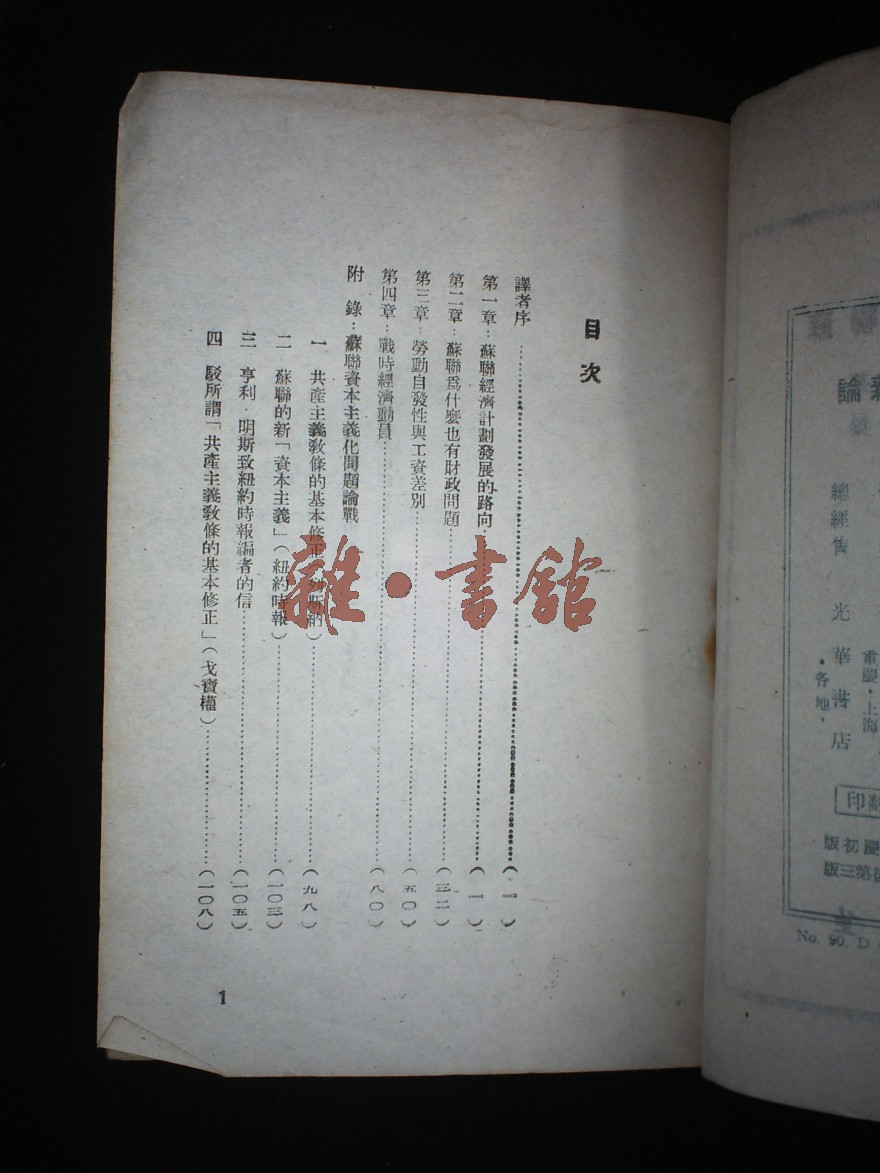 目次
譯者序……(一)
第一章：蘇聯經濟計劃發展的路向……(一)
第二章：蘇聯爲什麽也有財政問題……(三二)
第三章：勞動自發性與工資差別……(五〇)
第四章：戰時經濟動員……(八〇)
附　錄：蘇聯資本主義化問題論戰
一　共產主義敎條的基本修正(列斯納)……(九八)
二　蘇聯的新「資本主義」(紐約時報)……(一〇三)
三　亨利·明斯致紐約時報編者的信……(一〇五)
四　駁所謂「共產主義敎條的基本修正」(戈寶權)……(一〇八)
1
雜·書館
論
總經售　光華書店
重慶·上海
·各地·
印翻
初版
第三版
No. 90. D